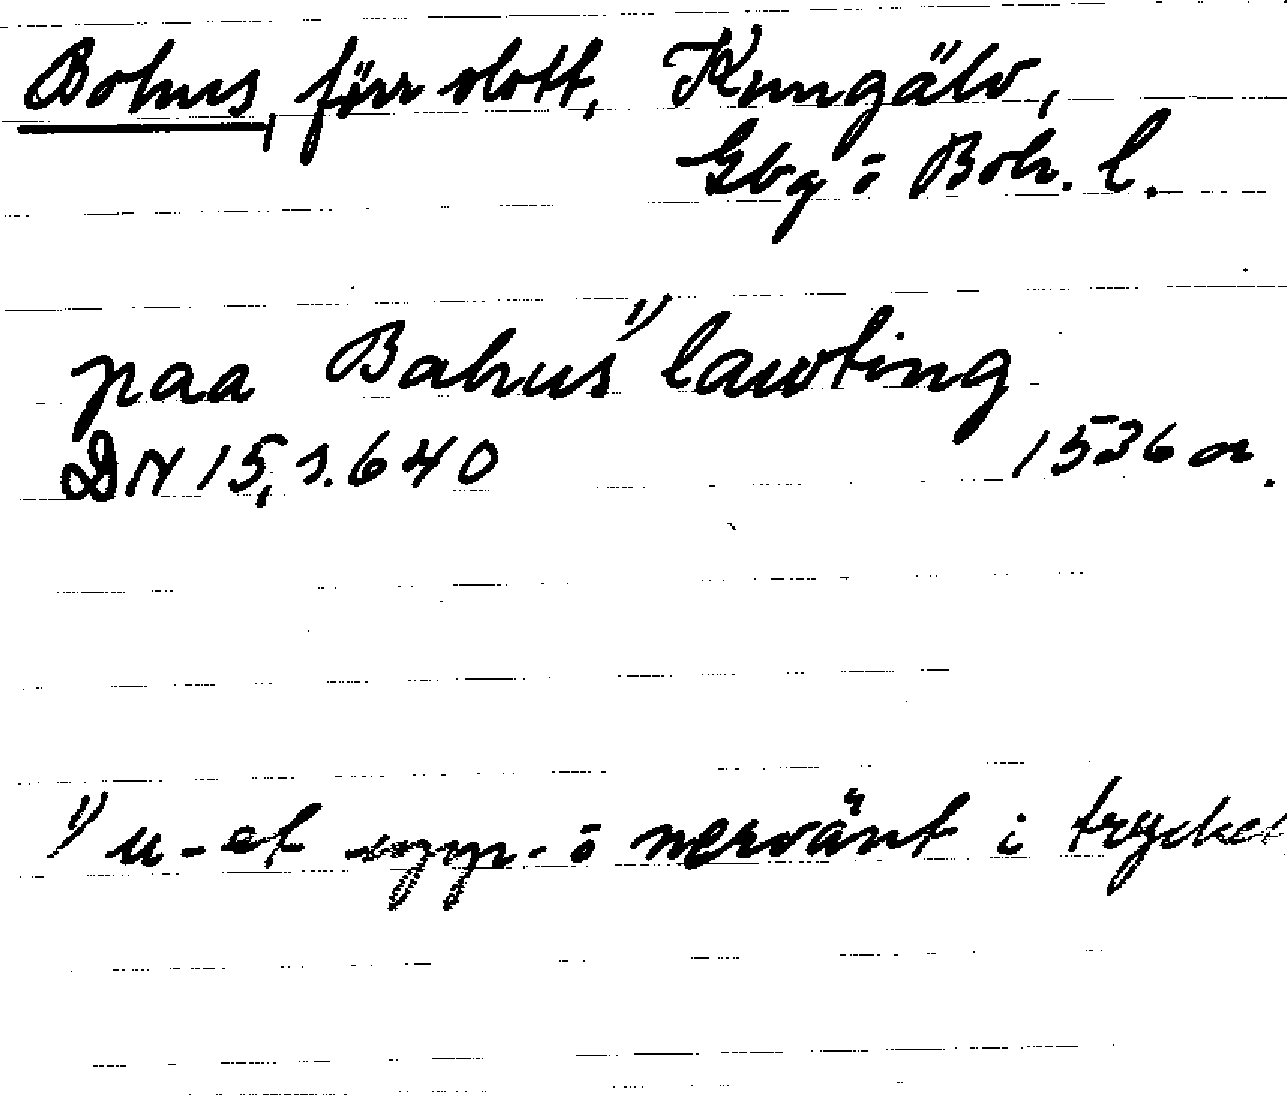 Bohus, förr slott, Kungälv,
Gbg o Boh. l.
paa Bahus¹⁾ lawting
DN 15, s. 640 1536 a.
¹⁾ u-et upp- o nervänt i trycket